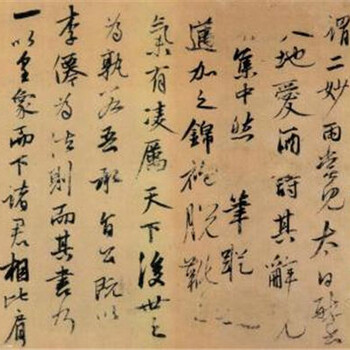 謂二妙而嘗見太白醉
地愛酒詩其辭凡
集中然筆蹤
邁加之錦袍脫靴
氣有凌厲天下後世之
為孰若吾承旨公既以
李僊為法則而其書乃
一以皇象而下諸君相比肩